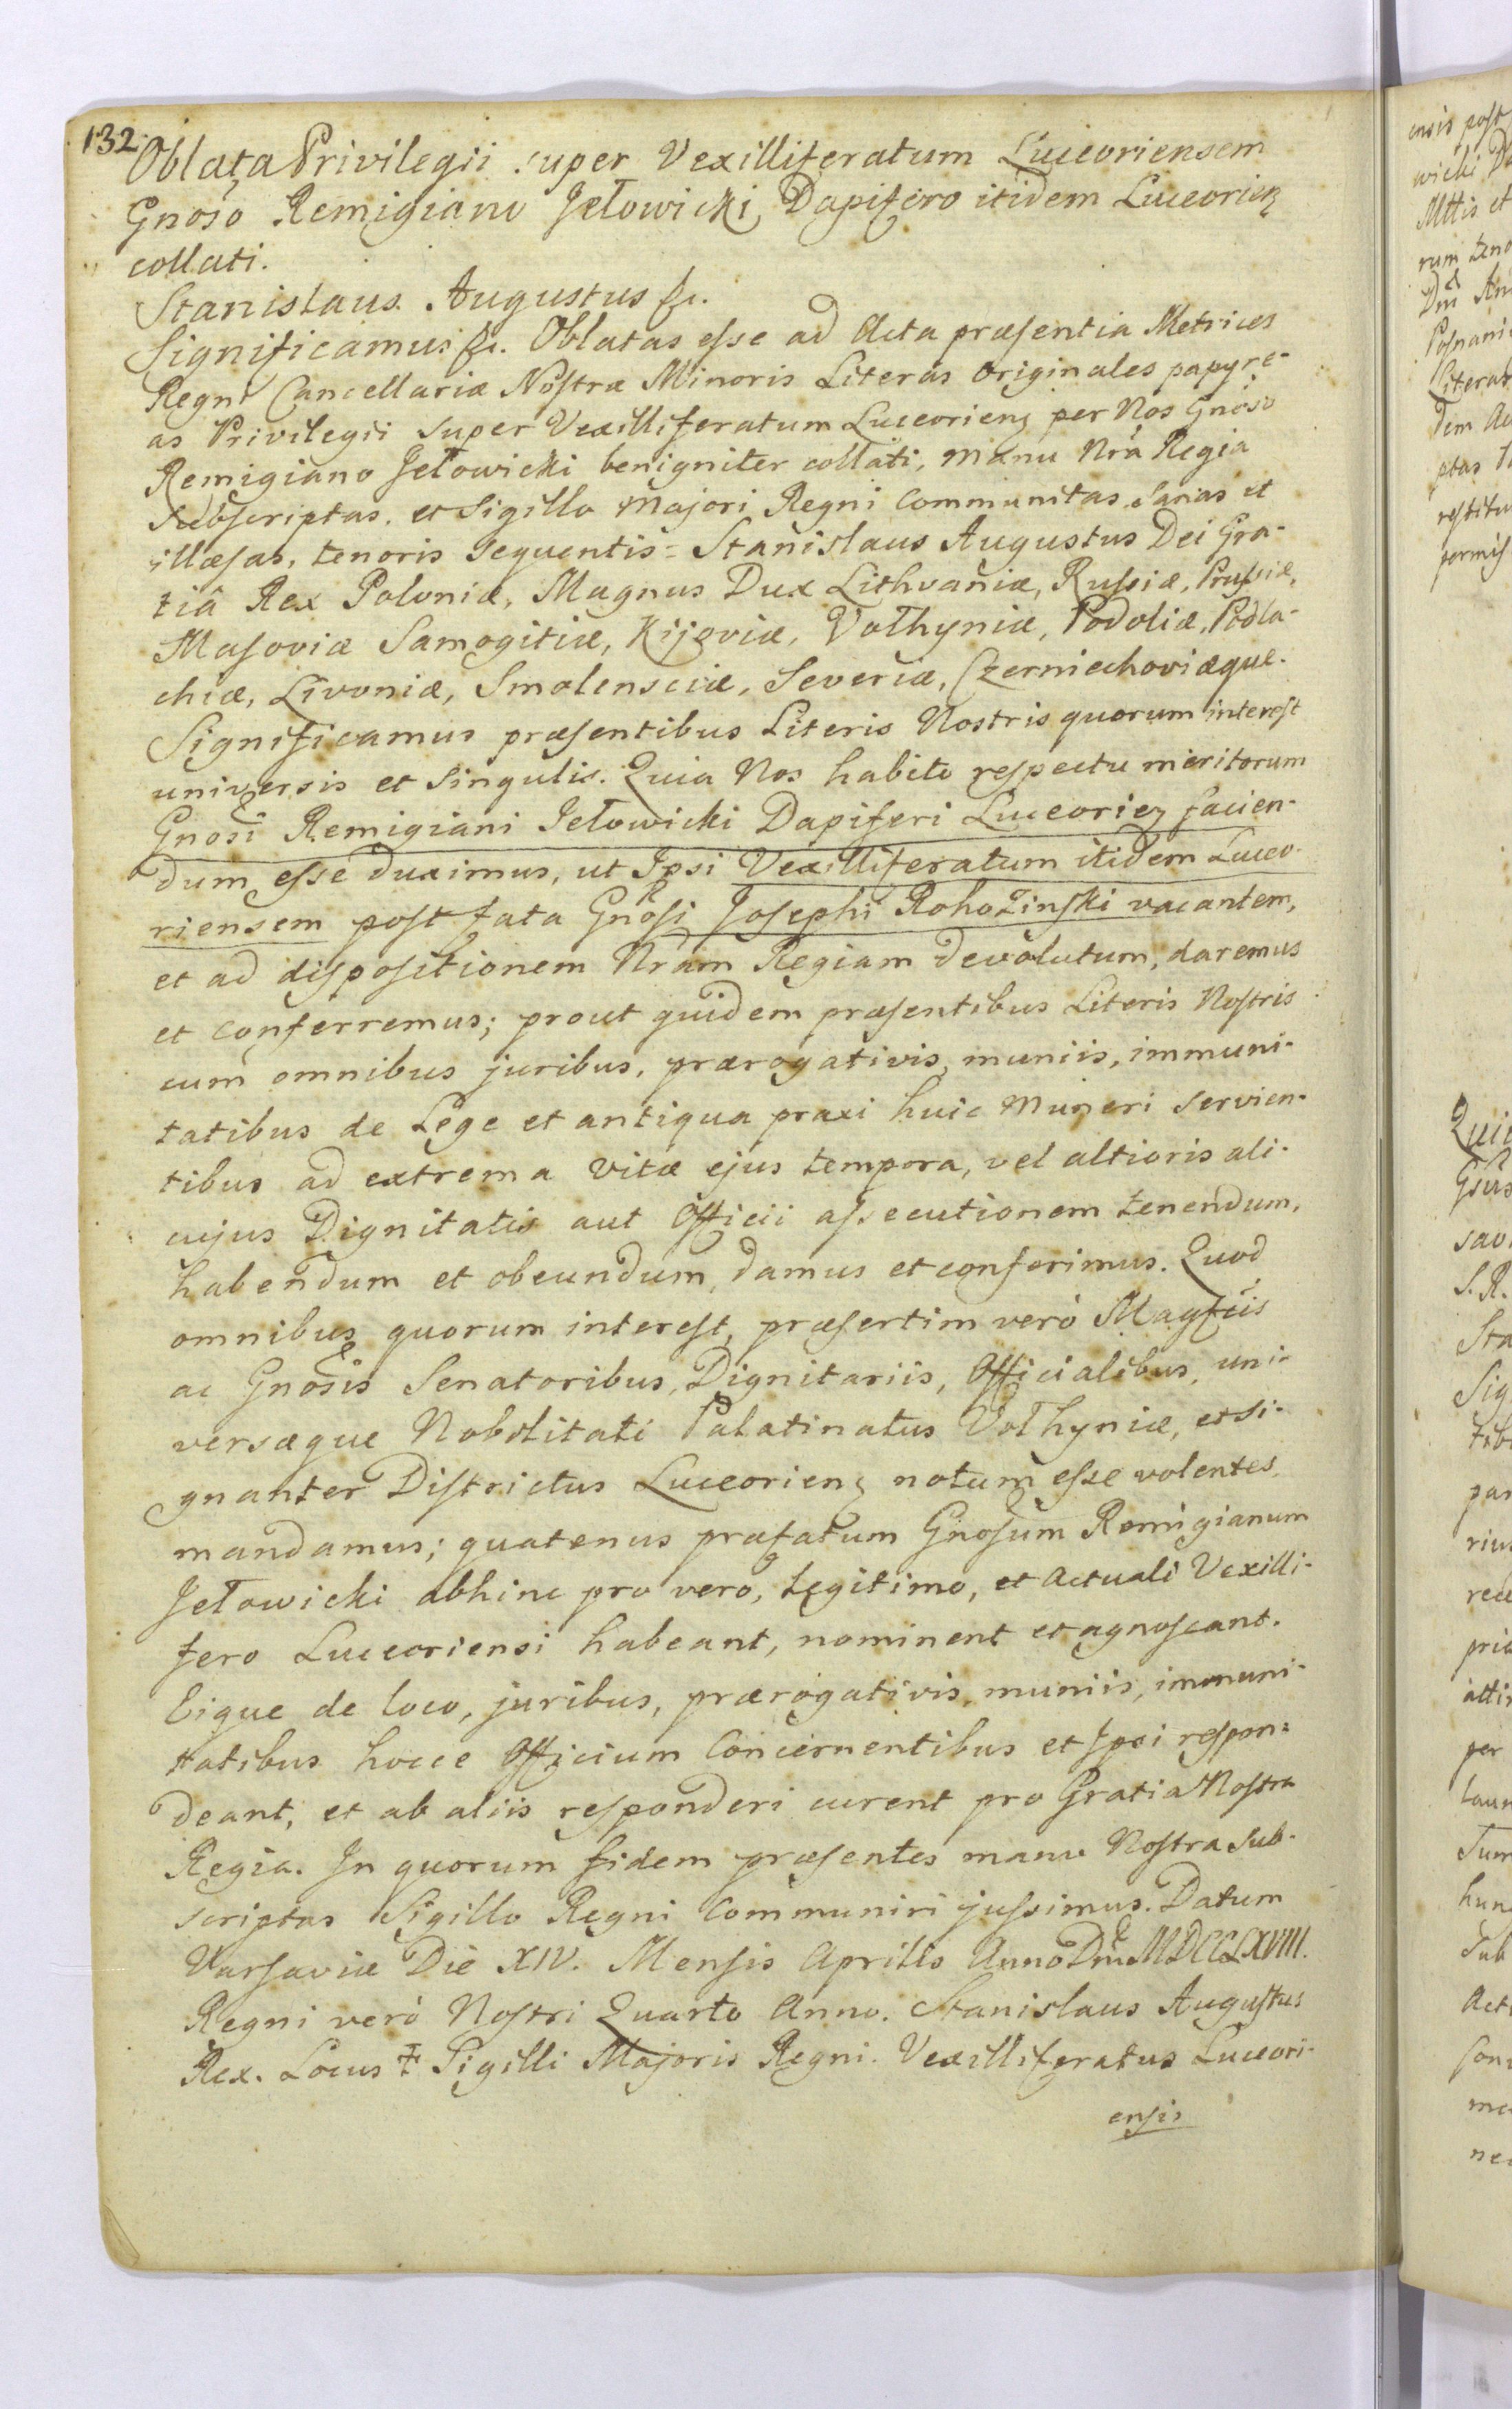 132.
Oblata Privilegii super Vexilliferatum Luceoriensem
Gnoso Remigiano Jełowicki, Dapifero itidem Luceorienz
collati.
Stanislaus Augustus &c.
Significamus &c. Oblatas esse ad Acta præsentia Metrices
Regni Cancellariæ Nostræ Minoris Literas Originales papyre-
as Privilegii super Vexilliferatum Luceorienz per Nos Gnoso
Remigiano Jełowicki benigniter collati, manu Nrâ Regia
Subscriptas, et Sigillo Majori Regni Communitas, Sanas et
illæsas, tenoris sequentis = Stanislaus Augustus Dei Gra-
tiâ Rex Poloniæ, Magnus Dux Lithvaniæ, Russiæ, Prussiæ,
Masoviæ Samogitiæ, Kijoviæ, Volhyniæ, Podoliæ, Podla-
chiæ, Livoniæ, Smolensciæ, Severiæ, Czerniechoviæque.
Significamus præsentibus Literis Nostris quorum interest
universis et Singulis. Quia Nos habito respectu meritorum
Gnosi Remigiani Jełowicki Dapiferi Luceorienz facien-
dum esse duximus, ut Ipsi Vexilliferatum itidem Luceo-
riensem post fata Gnosi Josephi Rohozinski vacantem,
et ad dispositionem Nram Regiam devolutum, daremus
et Conferremus; prout quidem præsentibus Literis Nostris
cum omnibus juribus, prærogativis, muniis, immuni-
tatibus de Lege et antiqua praxi huic Muneri servien-
tibus ad extrema vitæ ejus tempora, vel altioris ali-
cujus Dignitatis aut Officii assecutionem tenendum,
habendum et obeundum, damus et conferimus. Quod
omnibus quorum interest, præsertim verò Magfcis
ac Gnosis Senatoribus, Dignitariis, Officialibus, uni-
versæque Nobilitati Palatinatus Volhyniæ, et si-
gnanter Districtus Luceorienz notum esse volentes,
mandamus; quatenus præfatum Gnosum Remigianum
Jełowicki abhinc pro vero, legitimo, et Actuali Vexilli-
fero Luceoriensi habeant, nominent et agnoscant.
Eique de loco, juribus, prærogativis, muniis, immuni-
tatibus hocce Officium Concernentibus et Ipsi respon-
deant, et ab aliis responderi curent pro Gratia Nostra
Regia. In quorum fidem præsentes manu Nostra sub-
scriptas Sigillo Regni Communiri jussimus. Datum
Varsaviæ Die XIV. Mensis Aprilis Anno Dni MDCCLXVIII.
Regni verò Nostri Quarto Anno. Stanislaus Augustus
Rex. Locus ‡ Sigilli Majoris Regni. Vexilliferatus Luceori-
ensis